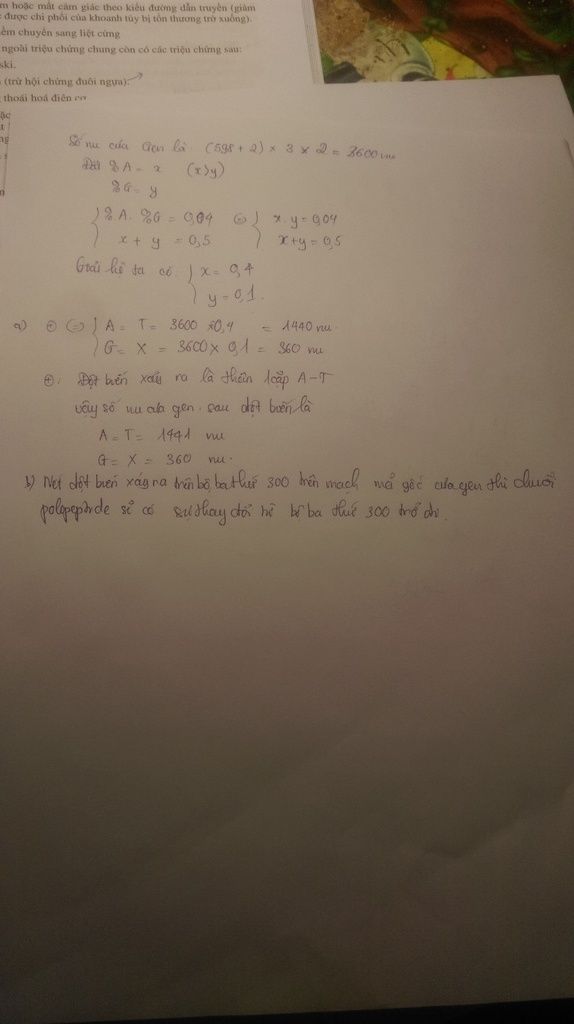 m hoặc mất cảm giác theo kiểu đường dẫn truyền (giảm
được chi phối của khoanh tủy bị tổn thương trở xuống).
ềm chuyển sang liệt cứng
ngoài triệu chứng chung còn có các triệu chứng sau:
ski.
(trừ hội chứng đuôi ngựa).
thoái hoá điện cơ
Số nu của Gen là (598 + 2) × 3 × 2 = 3600 nu
Đặt %A = x (x>y)
%G = y
%A. %G = 0,04 x.y = 0,04
x + y = 0,5 x+y = 0,5
Giải hệ ta có x = 0,4
y = 0,1.
a) A = T = 3600 × 0,4 = 1440 nu.
G = X = 3600 × 0,1 = 360 nu
Đột biến xảy ra là thêm 1 cặp A-T
vậy số nu của gen sau đột biến là
A = T = 1441 nu
G = X = 360 nu.
b) Nếu đột biến xảy ra trên bộ ba thứ 300 trên mạch mã gốc của gen thì chuỗi
polipeptide sẽ có sự thay đổi từ bộ ba thứ 300 trở đi.